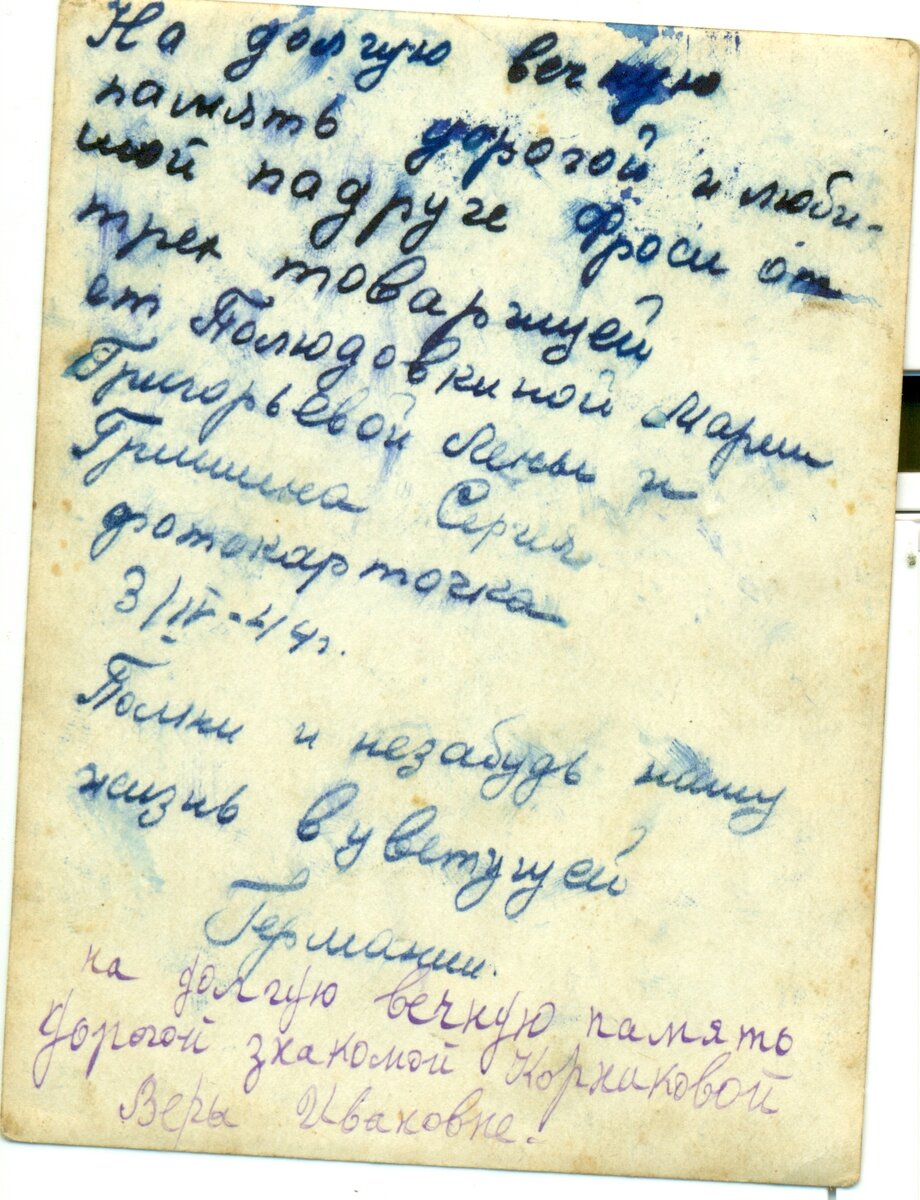 На долгую вечную
память дорогой и люби-
мой падруге Фроси от
трех товарищей
от Полюдовкиной Марии
Григорьевой Лены и
Гришина Сергия
фотокарточка
3/IV-44г.
Помни и незабудь нашу
жизнь в цветущей
Германии.
на долгую вечную память
дорогой знакомой Корнаковой
Веры Ивановне.